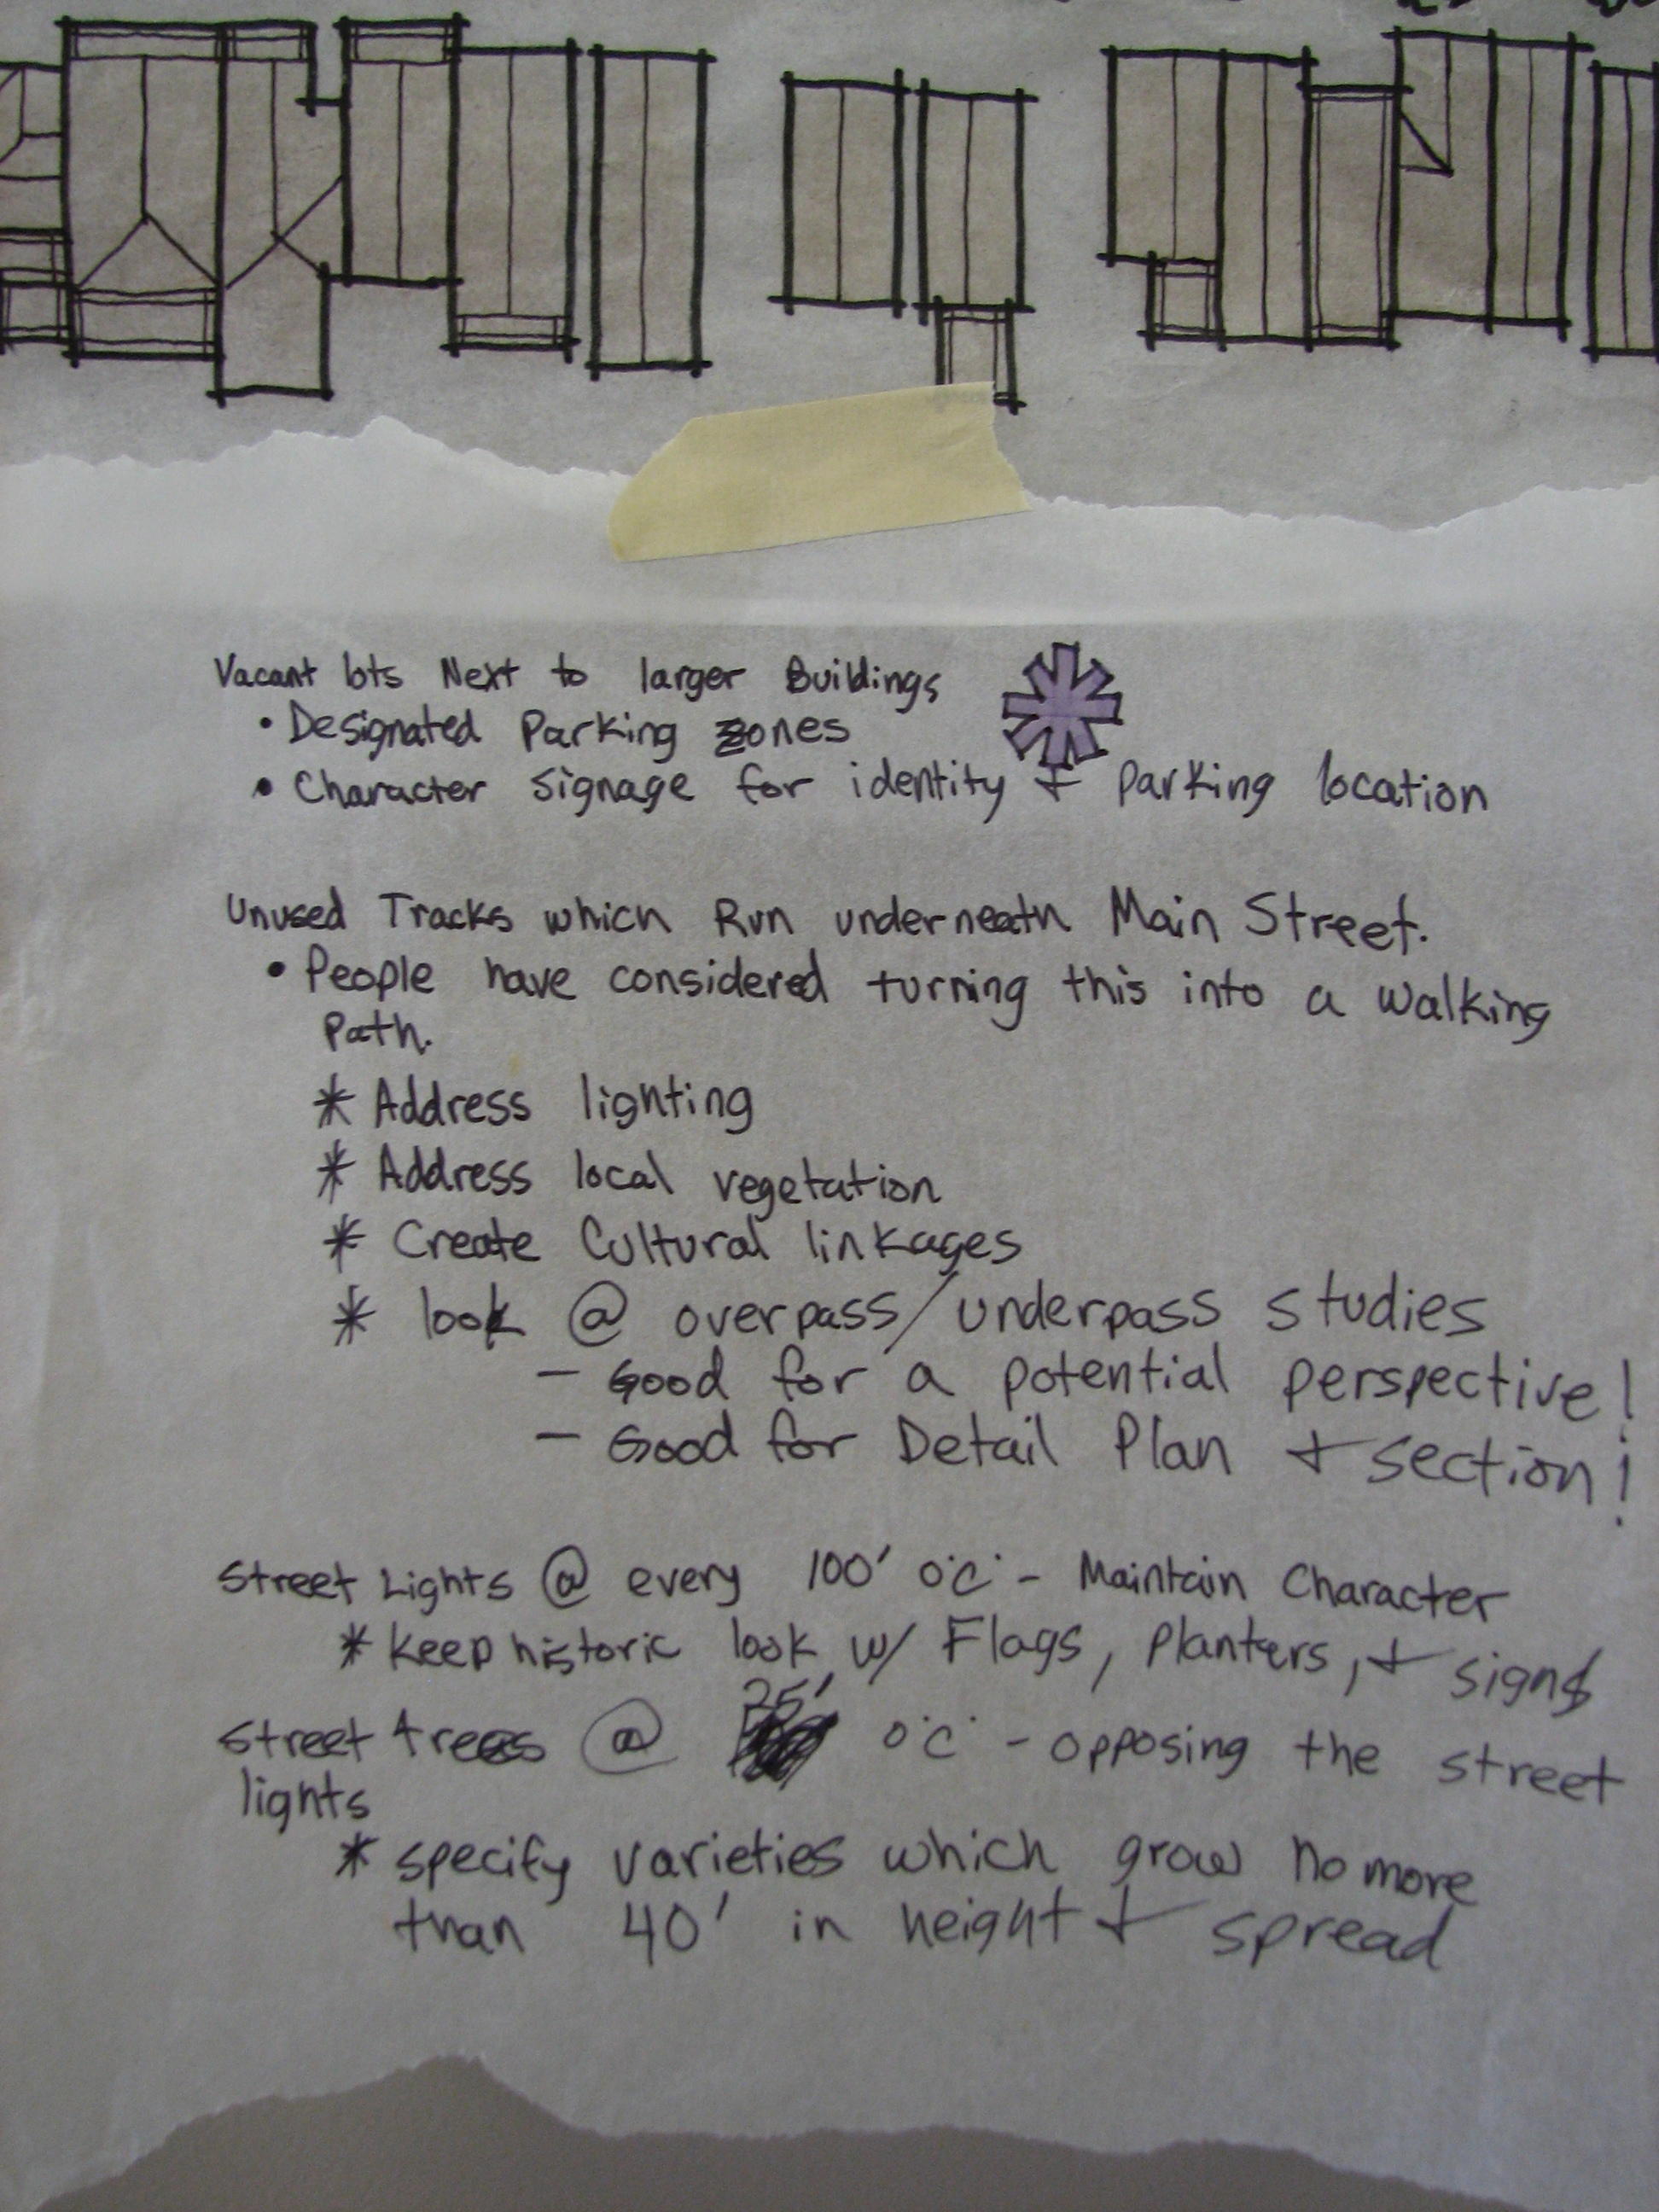 Vacant lots Next to larger Buildings
• Designated Parking Zones
• Character Signage for identity + Parking location
Unused Tracks which Run underneath Main Street.
• People have considered turning this into a walking
Path.
* Address lighting
* Address local vegetation
* Create Cultural linkages
* look @ overpass/underpass studies
- Good for a potential perspective!
- Good for Detail Plan + section!
Street Lights @ every 100' o.c. - Maintain Character
* keep historic look w/ Flags, Planters, + signs
Street trees @ 25' o.c. - opposing the street
lights
* specify varieties which grow no more
than 40' in height + spread